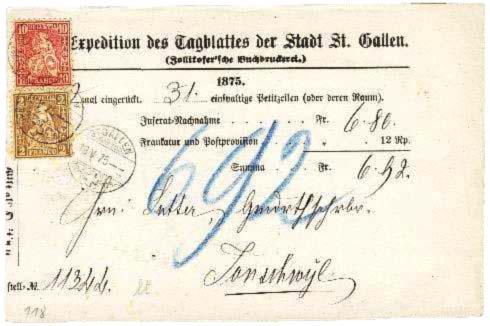 10 HELVETIA 10
FRANCO
2 FRANCO 2
Expedition des Tagblattes der Stadt St. Gallen.
(Zollikofer'sche Buchdruckerei.)
1875.
2 mal eingerückt. 31. einspaltige Petitzeilen (oder deren Raum).
Inserat-Nachnahme Fr. 6.80.
Frankatur und Postprovision 12 Rp.
Summa Fr. 6.92.
692
ST. GALLEN
V 75
Hrn: Sutter, Gmdrthschrbr.
Jonschwyl.
stell-№. 11344.
118